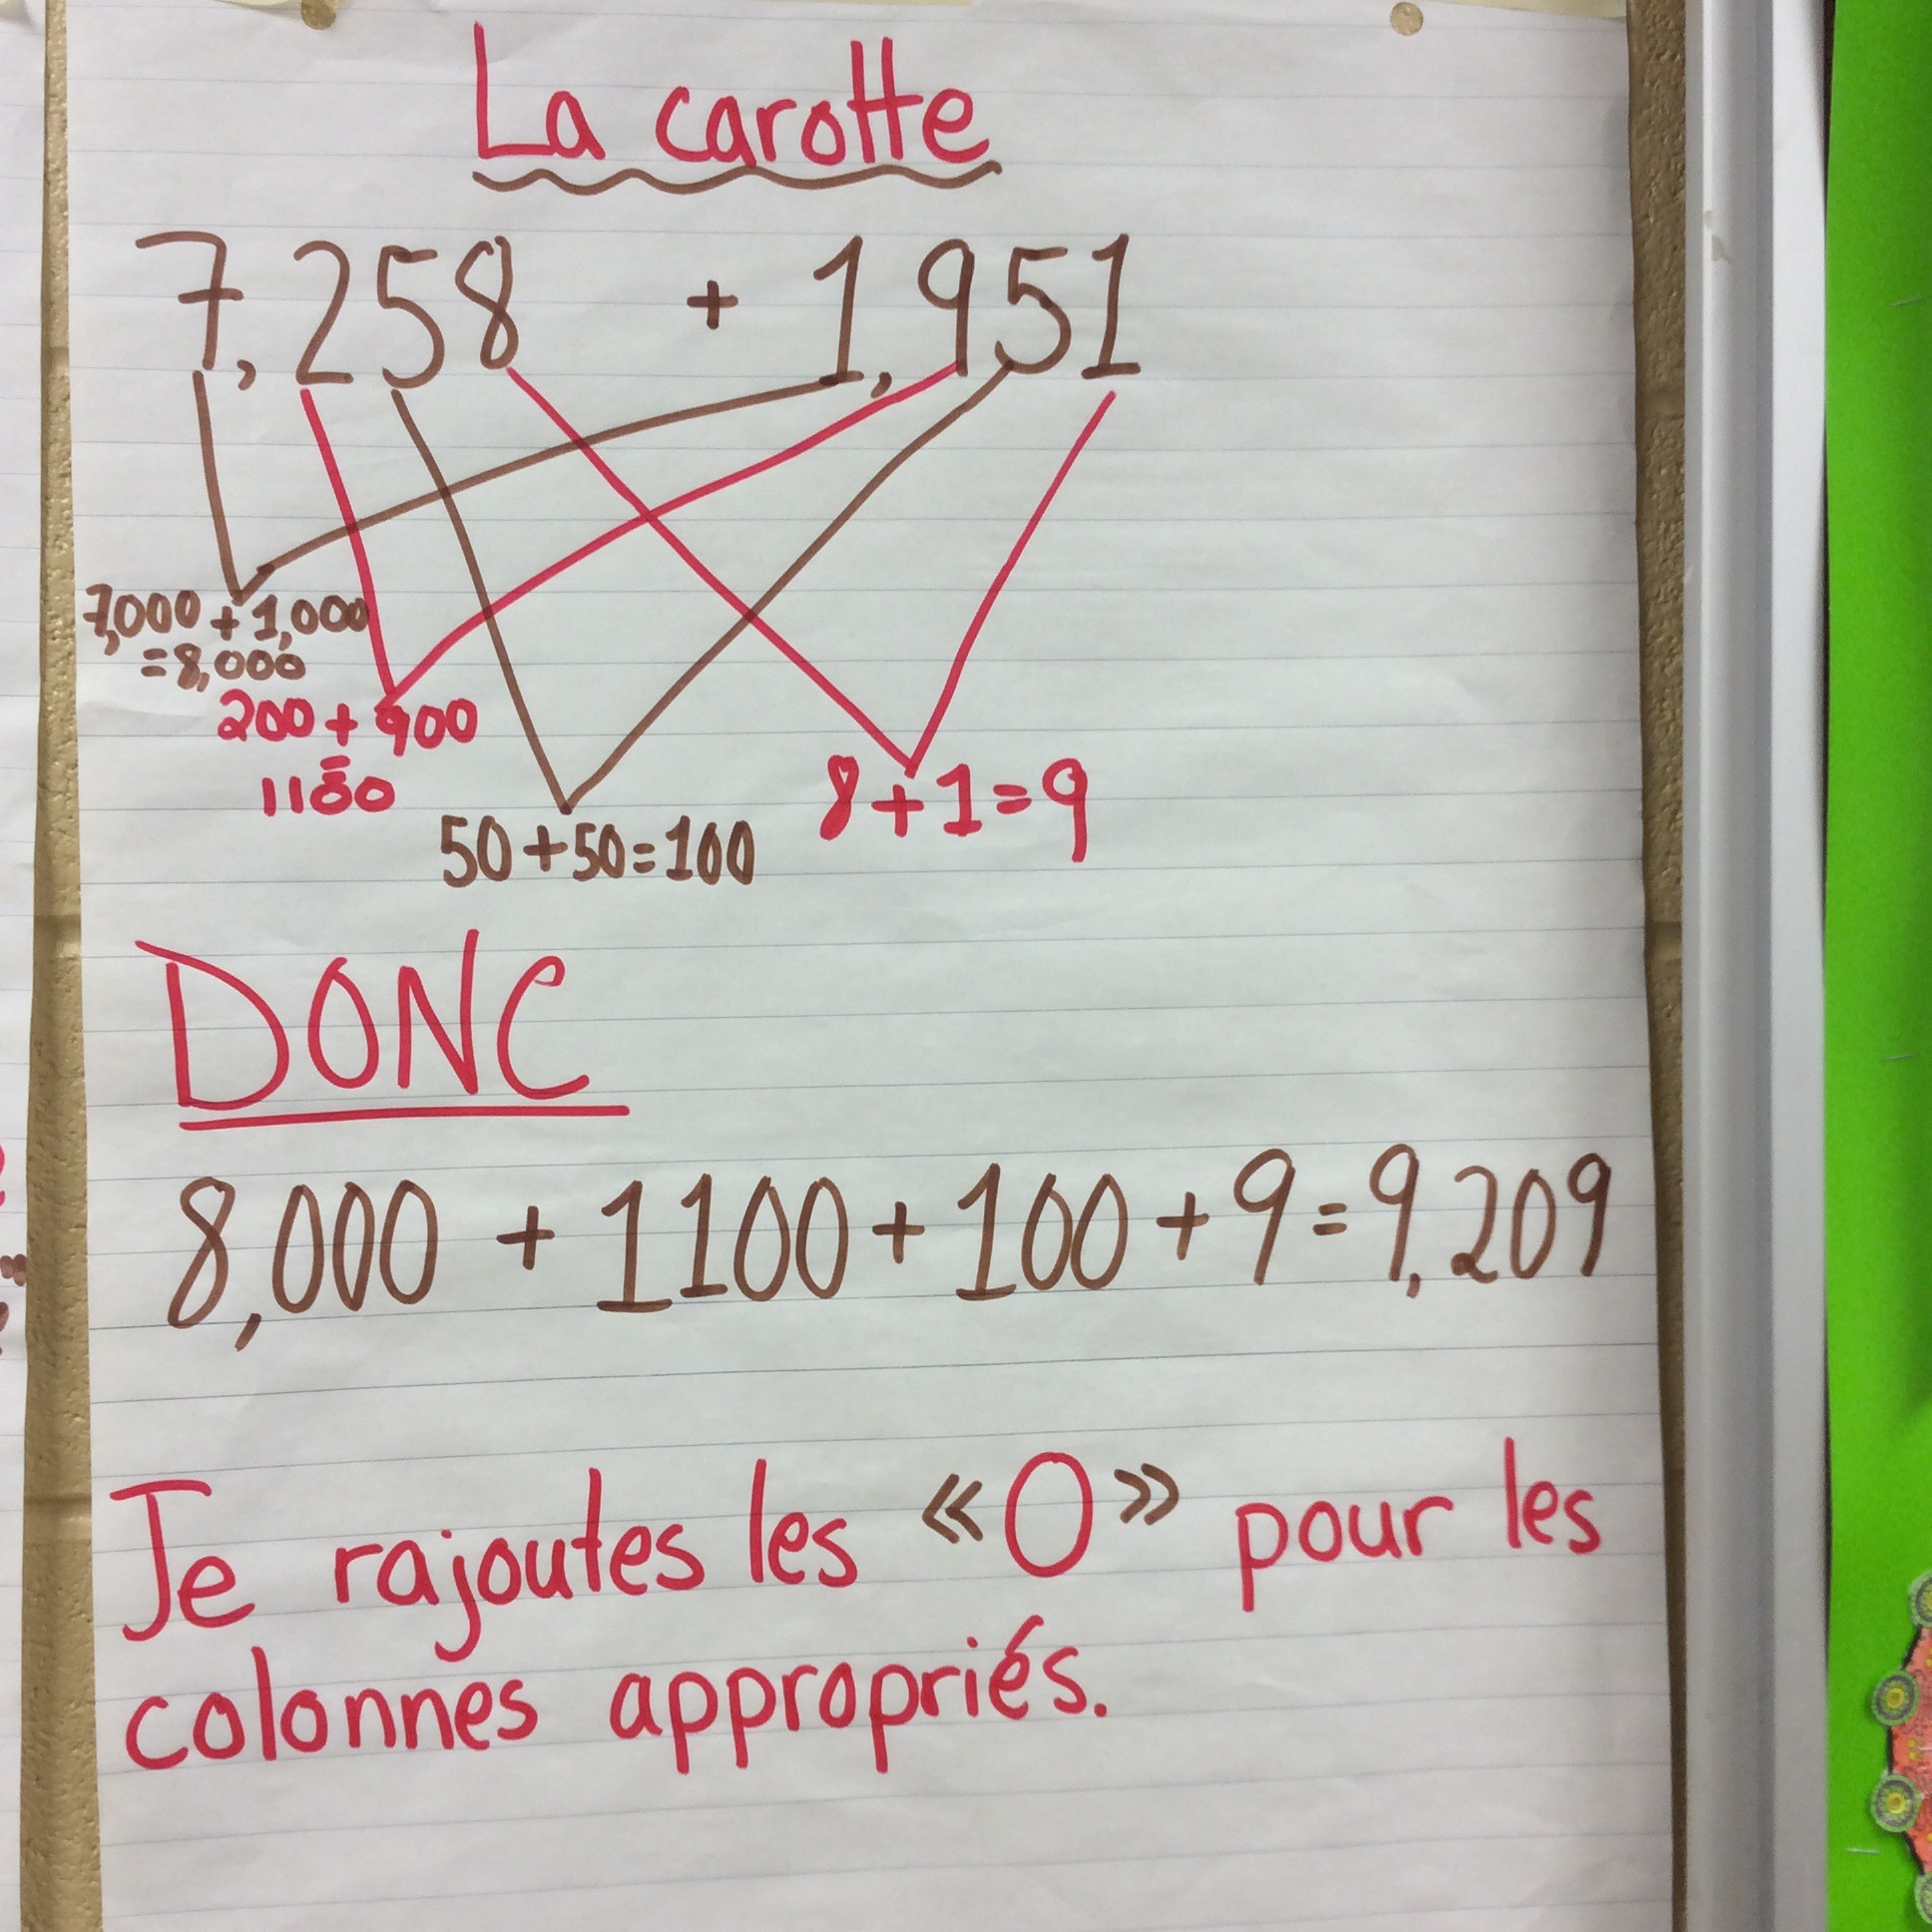 La carotte
7,258 + 1,951
7,000 + 1,000
=8,000
200 + 900
=
1100
50+50=100
8+1=9
DONC
8,000 + 1100 + 100 + 9 = 9,209
Je rajoutes les «0» pour les
colonnes appropriés.